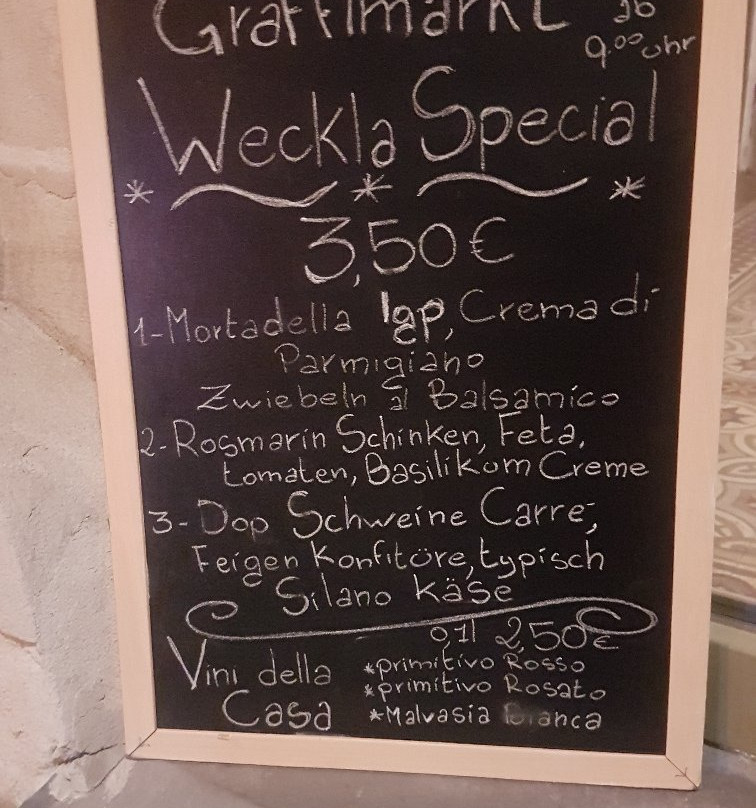 Grafflmarkt ab
9.00 Uhr
Weckla Special
* * *
3,50€
1-Mortadella Igp, Crema di
Parmigiano
Zwiebeln al Balsamico
2-Rosmarin Schinken, Feta,
tomaten, Basilikum Creme
3-Dop Schweine Carre,
Feigen Konfitüre, typisch
Silano Käse
0,1l 2,50€
Vini della
Casa
*primitivo Rosso
*primitivo Rosato
*Malvasia Bianca